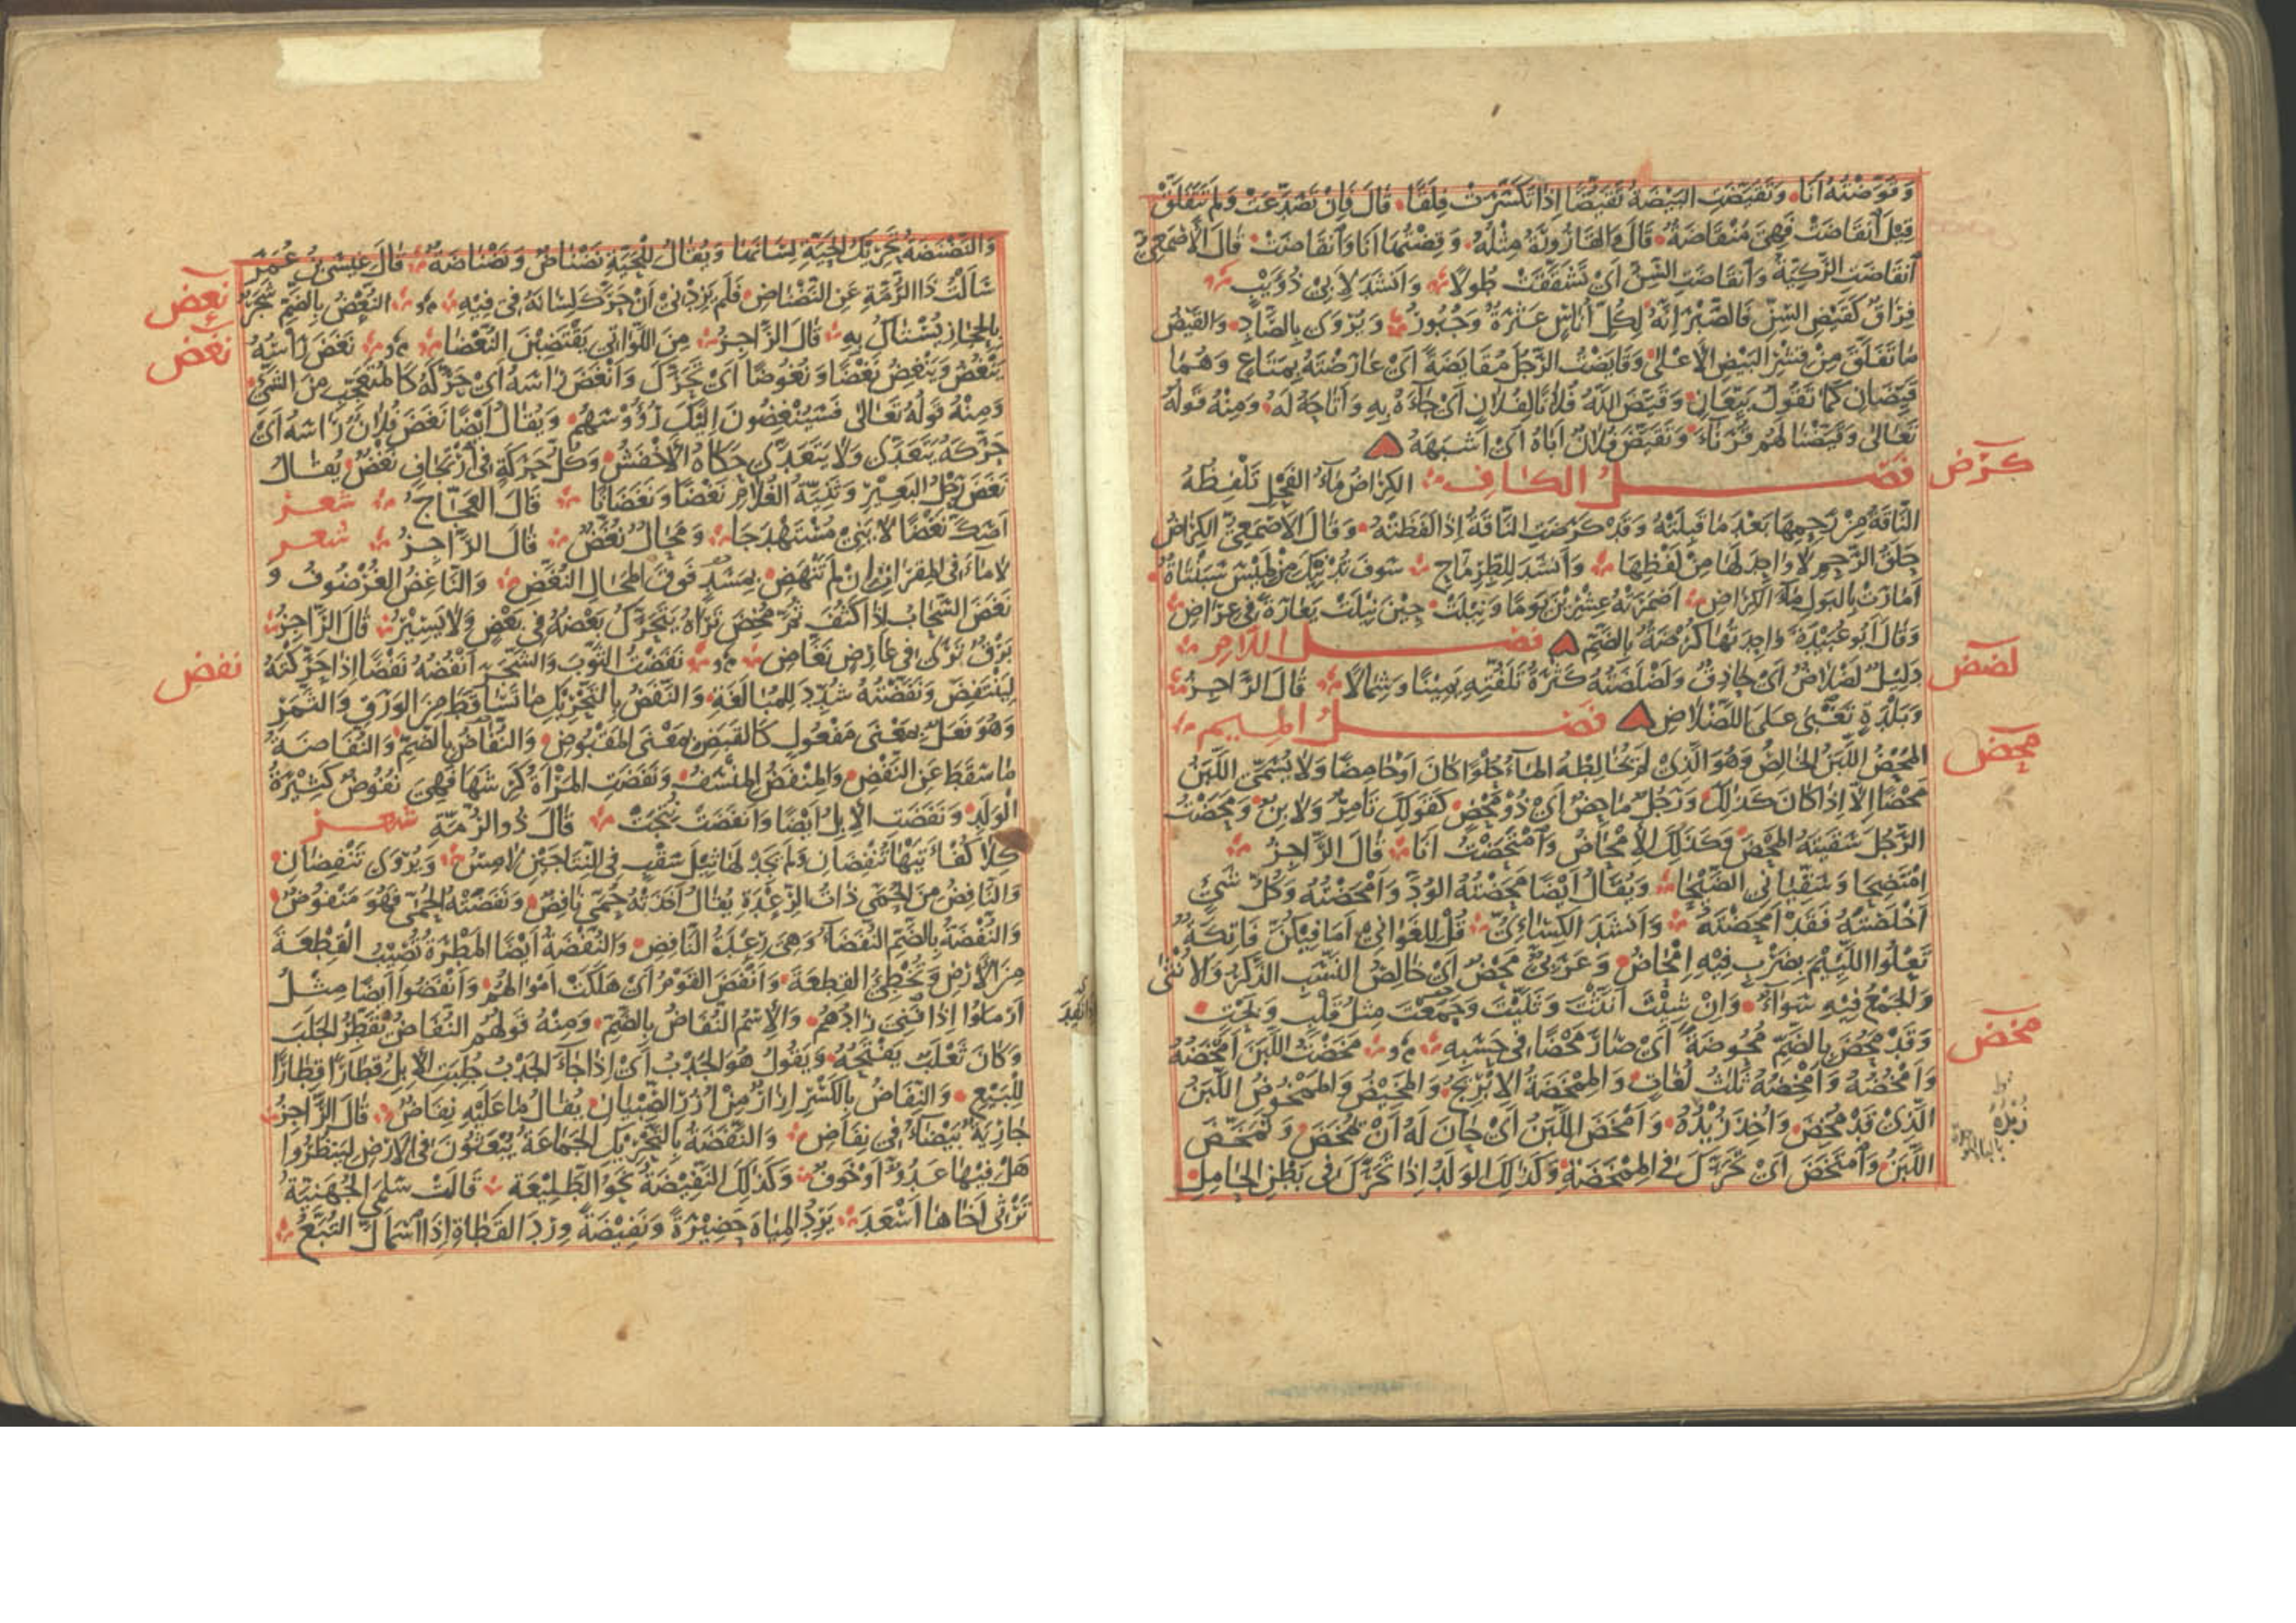 وَقَوَّضْتُهُ أَنَا وَتَقَيَّضَتِ البَيْضَةُ تَقَيُّضًا إِذَا تَكَسَّرَتْ فِلَقًا قَالَ فَإِنْ تَصَدَّعَتْ وَلَمْ تَتَفَلَّقْ
قِيلَ انْقَاضَتْ فَهِيَ مُنْقَاضَةٌ قَالَ وَالقَارُورَةُ مِثْلُهُ وَقِضْتُهَا أَنَا وَانْقَاضَتْ قَالَ الأَصْمَعِيُّ
انْقَاضَتِ الرَّكِيَّةُ وَانْقَاضَتِ السِّنُّ أَيْ تَشَقَّقَتْ طُولًا وَأَنْشَدَ لِأَبِي ذُؤَيْبٍ
فِرَاقٌ كَقَيْضِ السِّنِّ فَالصَّبْرَ إِنَّهُ لِكُلِّ أُنَاسٍ عَثْرَةٌ وَجُبُورُ وَيُرْوَى بِالصَّادِ وَالقَيْضُ
مَا تَفَلَّقَ مِنْ قِشْرِ البَيْضِ الأَعْلَى وَقَايَضْتُ الرَّجُلَ مُقَايَضَةً أَيْ عَارَضْتَهُ بِمَتَاعٍ وَهُمَا
قَيِّضَانِ كَمَا تَقُولُ بَيِّعَانِ وَقَيَّضَ اللّٰهُ فُلَانًا لِفُلَانٍ أَيْ جَآءَهُ بِهِ وَأَتَاحَهُ لَهُ وَمِنْهُ قَوْلُهُ
تَعَالَى وَقَيَّضْنَا لَهُمْ قُرَنَآءَ وَتَقَيَّضَ فُلَانٌ أَبَاهُ أَيْ أَشْبَهَهُ
كرض
فَصْلُ الكَافِ الكِرَاضُ مَآءُ الفَحْلِ تَلْفِظُهُ
النَّاقَةُ مِنْ رَحِمِهَا بَعْدَ مَا قَبِلَتْهُ وَقَدْ كَرَضَتِ النَّاقَةُ إِذَا لَفَظَتْهُ وَقَالَ الأَصْمَعِيُّ الكِرَاضُ
حَلَقُ الرَّحِمِ لَا وَاحِدَ لَهَا مِنْ لَفْظِهَا وَأَنْشَدَ لِلطِّرِمَّاحِ سَوْفَ تُدْنِيكَ مِنْ لَمِيسَ سَبَنْتَاةٌ
أَمَارَتْ بِالبَوْلِ مَآءَ الكِرَاضِ أَضْمَرَتْهُ عِشْرِينَ يَوْمًا وَنِيلَتْ حِينَ نِيلَتْ يَعَارَةً فِي عِرَاضِ
وَقَالَ أَبُو عُبَيْدَةَ وَاحِدَتُهَا كُرْضَةٌ بِالضَّمِّ فَصْلُ اللَّامِ
لضض
دَلِيلٌ لَضْلَاضٌ أَيْ حَاذِقٌ وَلَضْلَضَتُهُ كَثْرَةُ تَلَفُّتِهِ يَمِينًا وَشِمَالًا قَالَ الرَّاجِزُ
وَبَلْدَةٍ تَغْبَى عَلَى اللَّضْلَاضِ فَصْلُ المِيمِ
محض
المَحْضُ اللَّبَنُ الخَالِصُ وَهُوَ الَّذِي لَمْ يُخَالِطْهُ المَآءُ حُلْوًا كَانَ أَوْ حَامِضًا وَلَا يُسَمَّى اللَّبَنُ
مَحْضًا إِلَّا إِذَا كَانَ كَذٰلِكَ وَرَجُلٌ مَاحِضٌ أَيْ ذُو مَحْضٍ كَقَوْلِكَ تَامِرٌ وَلَابِنٌ وَمَحَضْتُ
الرَّجُلَ سَقَيْتُهُ المَحْضَ وَكَذٰلِكَ الإِمْحَاضُ وَامْتَحَضْتُ أَنَا قَالَ الرَّاجِزُ
امْتَحِضَا وَسَقِّيَانِي الضَّيْحَا وَيُقَالُ أَيْضًا مَحَضْتُهُ الوُدَّ وَأَمْحَضْتُهُ وَكُلُّ شَيْءٍ
أَخْلَصْتَهُ فَقَدْ أَمْحَضْتَهُ وَأَنْشَدَ الكِسَائِيُّ قُلْ لِلغَوَانِي أَمَا فِيكُنَّ فَاتِكَةٌ
تَعْلُو اللَّئِيمَ بِضَرْبٍ فِيهِ إِمْحَاضُ وَعَرَبِيٌّ مَحْضٌ أَيْ خَالِصُ النَّسَبِ الذَّكَرُ وَالأُنْثَى
وَالجَمْعُ فِيهِ سَوَآءٌ وَإِنْ شِئْتَ أَنَّثْتَ وَثَنَّيْتَ وَجَمَعْتَ مِثْلُ قَلْبٍ وَبَحْتٍ
مخض
وَقَدْ مَحُضَ بِالضَّمِّ مُحُوضَةً أَيْ صَارَ مَحْضًا فِي حَسَبِهِ مَخَضْتُ اللَّبَنَ أَمْخَضُهُ
وَأَمْخُضُهُ وَأَمْخِضُهُ ثَلٰثُ لُغَاتٍ وَالمِمْخَضَةُ الإِبْرِيجُ وَالمَخِيضُ وَالمَمْخُوضُ اللَّبَنُ
الَّذِي قَدْ مُخِضَ وَأُخِذَ زُبْدُهُ وَأَمْخَضَ اللَّبَنُ أَيْ حَانَ لَهُ أَنْ يُمْخَضَ وَتَمَخَّضَ
زبده
اللَّبَنُ وَامْتَخَضَ أَيْ تَحَرَّكَ فِي المِمْخَضَةِ وَكَذٰلِكَ الوَلَدُ إِذَا تَحَرَّكَ فِي بَطْنِ الحَامِلِ
وَالنَّضْنَضَةُ تَحْرِيكُ الحَيَّةِ لِسَانَهَا وَيُقَالُ لِلْحَيَّةِ نَضْنَاضٌ وَنَضْنَاضَةٌ قَالَ عِيسَى بْنُ عُمَرَ
نعض
سَأَلْتُ ذَا الرُّمَّةِ عَنِ النَّضْنَاضِ فَلَمْ يَزِدْنِي أَنْ حَرَّكَ لِسَانَهُ فِي فِيهِ النُّعْضُ بِالضَّمِّ شَجَرٌ
نغض
بِالحِجَازِ يُسْتَاكُ بِهِ قَالَ الرَّاجِزُ مِنَ اللَّوَاتِي يَقْتَضِبْنَ النُّعْضَا نَغَضَ رَأْسُهُ
يَنْغُضُ وَيَنْغِضُ نَغْضًا وَنُغُوضًا أَيْ تَحَرَّكَ وَأَنْغَضَ رَأْسَهُ أَيْ حَرَّكَهُ كَالمُتَعَجِّبِ مِنَ الشَّيْءِ
وَمِنْهُ قَوْلُهُ تَعَالَى فَسَيُنْغِضُونَ إِلَيْكَ رُؤُوسَهُمْ وَيُقَالُ أَيْضًا نَغَضَ فُلَانٌ رَأْسَهُ أَيْ
حَرَّكَهُ يَتَعَدَّى وَلَا يَتَعَدَّى حَكَاهُ الأَخْفَشُ وَكُلُّ حَرَكَةٍ فِي ارْتِجَافٍ نَغْضٌ يُقَالُ
نَغَضَ رَحْلُ البَعِيرِ وَثَنِيَّةُ الغُلَامِ نَغْضًا وَنَغَضَانًا قَالَ العَجَّاجُ شعر
أَسَكَّ نَغْضًا لَا يَنِي مُسْتَهْدَجَا وَمَحَالٌ نُغَّضٌ قَالَ الرَّاجِزُ شعر
لَا مَآءَ فِي المِقْرَاةِ إِنْ لَمْ تَنْهَضِ بِمَسَدٍ فَوْقَ المَحَالِ النُّغَّضِ وَالنَّاغِضُ الغُرْضُوفُ وَ
نَغَضَ السَّحَابُ إِذَا كَثُفَ ثُمَّ مَخَضَ تَرَاهُ يَتَحَرَّكُ بَعْضُهُ فِي بَعْضٍ وَلَا يَسِيرُ قَالَ الرَّاجِزُ
نفض
بَرْقٌ تَرَى فِي عَارِضٍ نَغَّاضِ نَفَضْتُ الثَّوْبَ وَالشَّجَرَ أَنْفُضُهُ نَفْضًا إِذَا حَرَّكْتَهُ
لِيَنْتَفِضَ وَنَفَّضْتُهُ شُدِّدَ لِلمُبَالَغَةِ وَالنَّفَضُ بِالتَّحْرِيكِ مَا تَسَاقَطَ مِنَ الوَرَقِ وَالثَّمَرِ
وَهُوَ فَعَلٌ بِمَعْنَى مَفْعُولٍ كَالقَبَضِ بِمَعْنَى المَقْبُوضِ وَالنُّفَاضُ بِالضَّمِّ وَالنُّفَاضَةُ
مَا سَقَطَ عَنِ النَّفْضِ وَالمِنْفَضُ المِنْسَفُ وَنَفَضَتِ المَرْأَةُ كَرِشَهَا فَهِيَ نَفُوضٌ كَثِيرَةُ
الوَلَدِ وَنَفَضَتِ الإِبِلُ أَيْضًا وَأَنْفَضَتْ نُتِجَتْ قَالَ ذُو الرُّمَّةِ شعر
كِلَا كُفْأَتَيْهَا تُنْفِضَانِ وَلَمْ يَجِدْ لَهَا ثِيلَ سَقْبٍ فِي النِّتَاجَيْنِ لَامِسُ وَيُرْوَى تَنْفِضَانِ
وَالنَّافِضُ مِنَ الحُمَّى ذَاتُ الرِّعْدَةِ يُقَالُ أَخَذَتْهُ حُمَّى نَافِضٌ وَنَفَضَتْهُ الحُمَّى فَهُوَ مَنْفُوضٌ
وَالنُّفْضَةُ بِالضَّمِّ النُّفَضَآءُ وَهِيَ رِعْدَةُ النَّافِضِ وَالنُّفْضَةُ أَيْضًا المَطْرَةُ تُصِيبُ القِطْعَةَ
مِنَ الأَرْضِ وَتُخْطِئُ القِطْعَةَ وَأَنْفَضَ القَوْمُ أَيْ هَلَكَتْ أَمْوَالُهُمْ وَأَنْفَضُوا أَيْضًا مِثْلُ
أَرْمَلُوا إِذَا فَنِيَ زَادُهُمْ وَالإِسْمُ النُّفَاضُ بِالضَّمِّ وَمِنْهُ قَوْلُهُمْ النُّفَاضُ يُقَطِّرُ الجَلَبَ
وَكَانَ ثَعْلَبٌ يَفْتَحُهُ وَيَقُولُ هُوَ الجَدْبُ أَيْ إِذَا جَآءَ الجَدْبُ جُلِبَتِ الإِبِلُ قِطَارًا قِطَارًا
لِلْبَيْعِ وَالنِّفَاضُ بِالكَسْرِ إِزَارٌ مِنْ أُزُرِ الصِّبْيَانِ يُقَالُ مَا عَلَيْهِ نِفَاضٌ قَالَ الرَّاجِزُ
جَارِيَةٌ بَيْضَآءُ فِي نِفَاضِ وَالنَّفَضَةُ بِالتَّحْرِيكِ الجَمَاعَةُ يُبْعَثُونَ فِي الأَرْضِ لِيَنْظُرُوا
هَلْ فِيهَا عَدُوٌّ أَوْ خَوْفٌ وَكَذٰلِكَ النَّفِيضَةُ نَحْوَ الطَّلِيعَةِ قَالَتْ سَلْمَى الجُهَنِيَّةُ
تَرْثِي أَخَاهَا أَسْعَدَ يَرِدُ المِيَاهَ حَضِيرَةً وَنَفِيضَةً وِرْدَ القَطَاةِ إِذَا اسْمَأَلَّ التُّبَّعُ